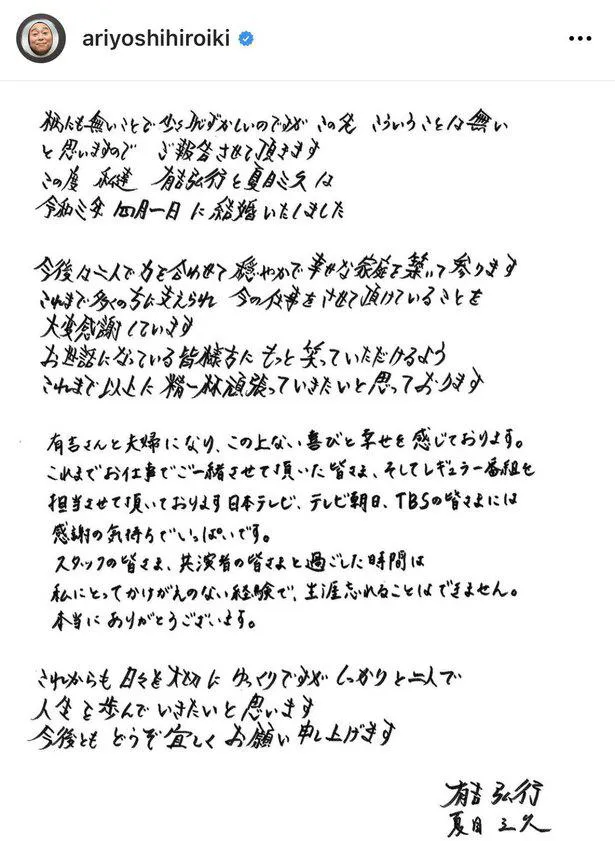 ariyoshihiroiki
柄にも無いことで少し恥ずかしいのですが この先 こういうことは無い
と思いますので ご報告させて頂きます
この度 私達 有吉弘行と夏目三久は
令和三年 四月一日 に結婚いたしました
今後々二人で力を合わせて 穏やかで幸せな家庭を築いて参ります
これまで多くの方に支えられ 今の仕事をさせて頂けていることを
大変感謝しています
お世話になっている皆様方に もっと笑っていただけるよう
これまで以上に精一杯頑張っていきたいと思っております
有吉さんと夫婦になり、この上ない喜びと幸せを感じております。
これまでお仕事でご一緒させて頂いた皆さま、そしてレギュラー番組を
担当させて頂いております日本テレビ、テレビ朝日、TBSの皆さまには
感謝の気持ちでいっぱいです。
スタッフの皆さま、共演者の皆さまと過ごした時間は
私にとってかけがえのない経験で、生涯忘れることはできません。
本当にありがとうございます。
これからも 日々を大切に ゆっくりですが しっかりと二人で
人生を歩んでいきたいと思います
今後とも どうぞ宜しく お願い申し上げます
有吉弘行
夏目三久